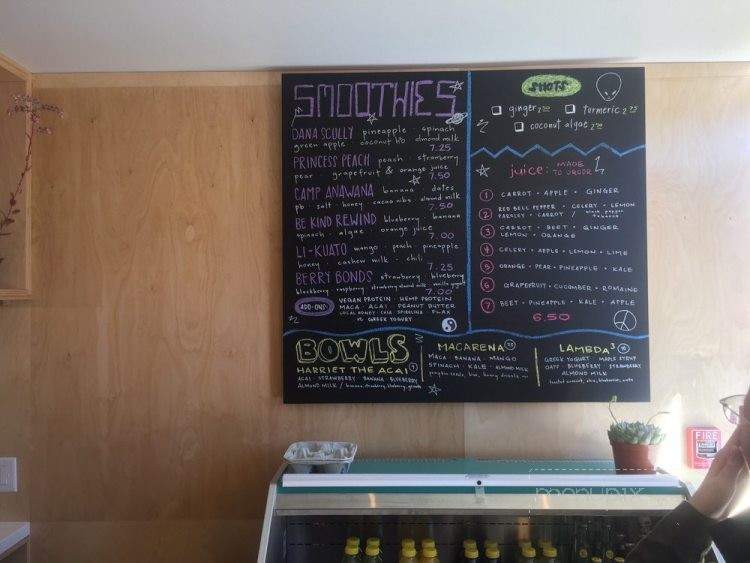 SMOOTHIES
DANA SCULLY pineapple spinach
green apple coconut h2o almond milk
7.25
PRINCESS PEACH peach strawberry
pear grapefruit & orange juice
7.50
CAMP ANAWANA banana dates
pb salt honey cacao nibs almond milk
7.50
BE KIND REWIND blueberry banana
spinach algae orange juice
7.00
LI-KUATO mango peach pineapple
honey cashew milk chili
7.25
BERRY BONDS strawberry blueberry
blackberry raspberry strawberry almond milk vanilla yogurt
7.00
ADD-ONS:
VEGAN PROTEIN HEMP PROTEIN
MACA ACAI PEANUT BUTTER
LOCAL HONEY CHIA SPIRULINA FLAX
GREEK YOGURT
SHOTS
ginger 2.00 turmeric 2.75
coconut algae 2.00
juice: MADE TO ORDER
1 CARROT • APPLE • GINGER
2 RED BELL PEPPER • CELERY • LEMON
PARSLEY • CARROT / black pepper
tabasco
3 CARROT • BEET • GINGER
LEMON • ORANGE
4 CELERY • APPLE • LEMON • LIME
5 ORANGE • PEAR • PINEAPPLE • KALE
6 GRAPEFRUIT • CUCUMBER • ROMAINE
7 BEET • PINEAPPLE • KALE • APPLE
6.50
BOWLS
HARRIET THE ACAI
ACAI • STRAWBERRY BANANA BLUEBERRY
ALMOND MILK / banana, strawberry, blueberry, granola
MACARENA
MACA • BANANA • MANGO
SPINACH • KALE • ALMOND MILK
pumpkin seeds, kiwi, honey drizzle
LAMBDA 3
GREEK YOGURT MAPLE SYRUP
OATS • BLUEBERRY STRAWBERRY
ALMOND MILK
toasted coconut, chia, blueberries, oats
FIRE
menupix